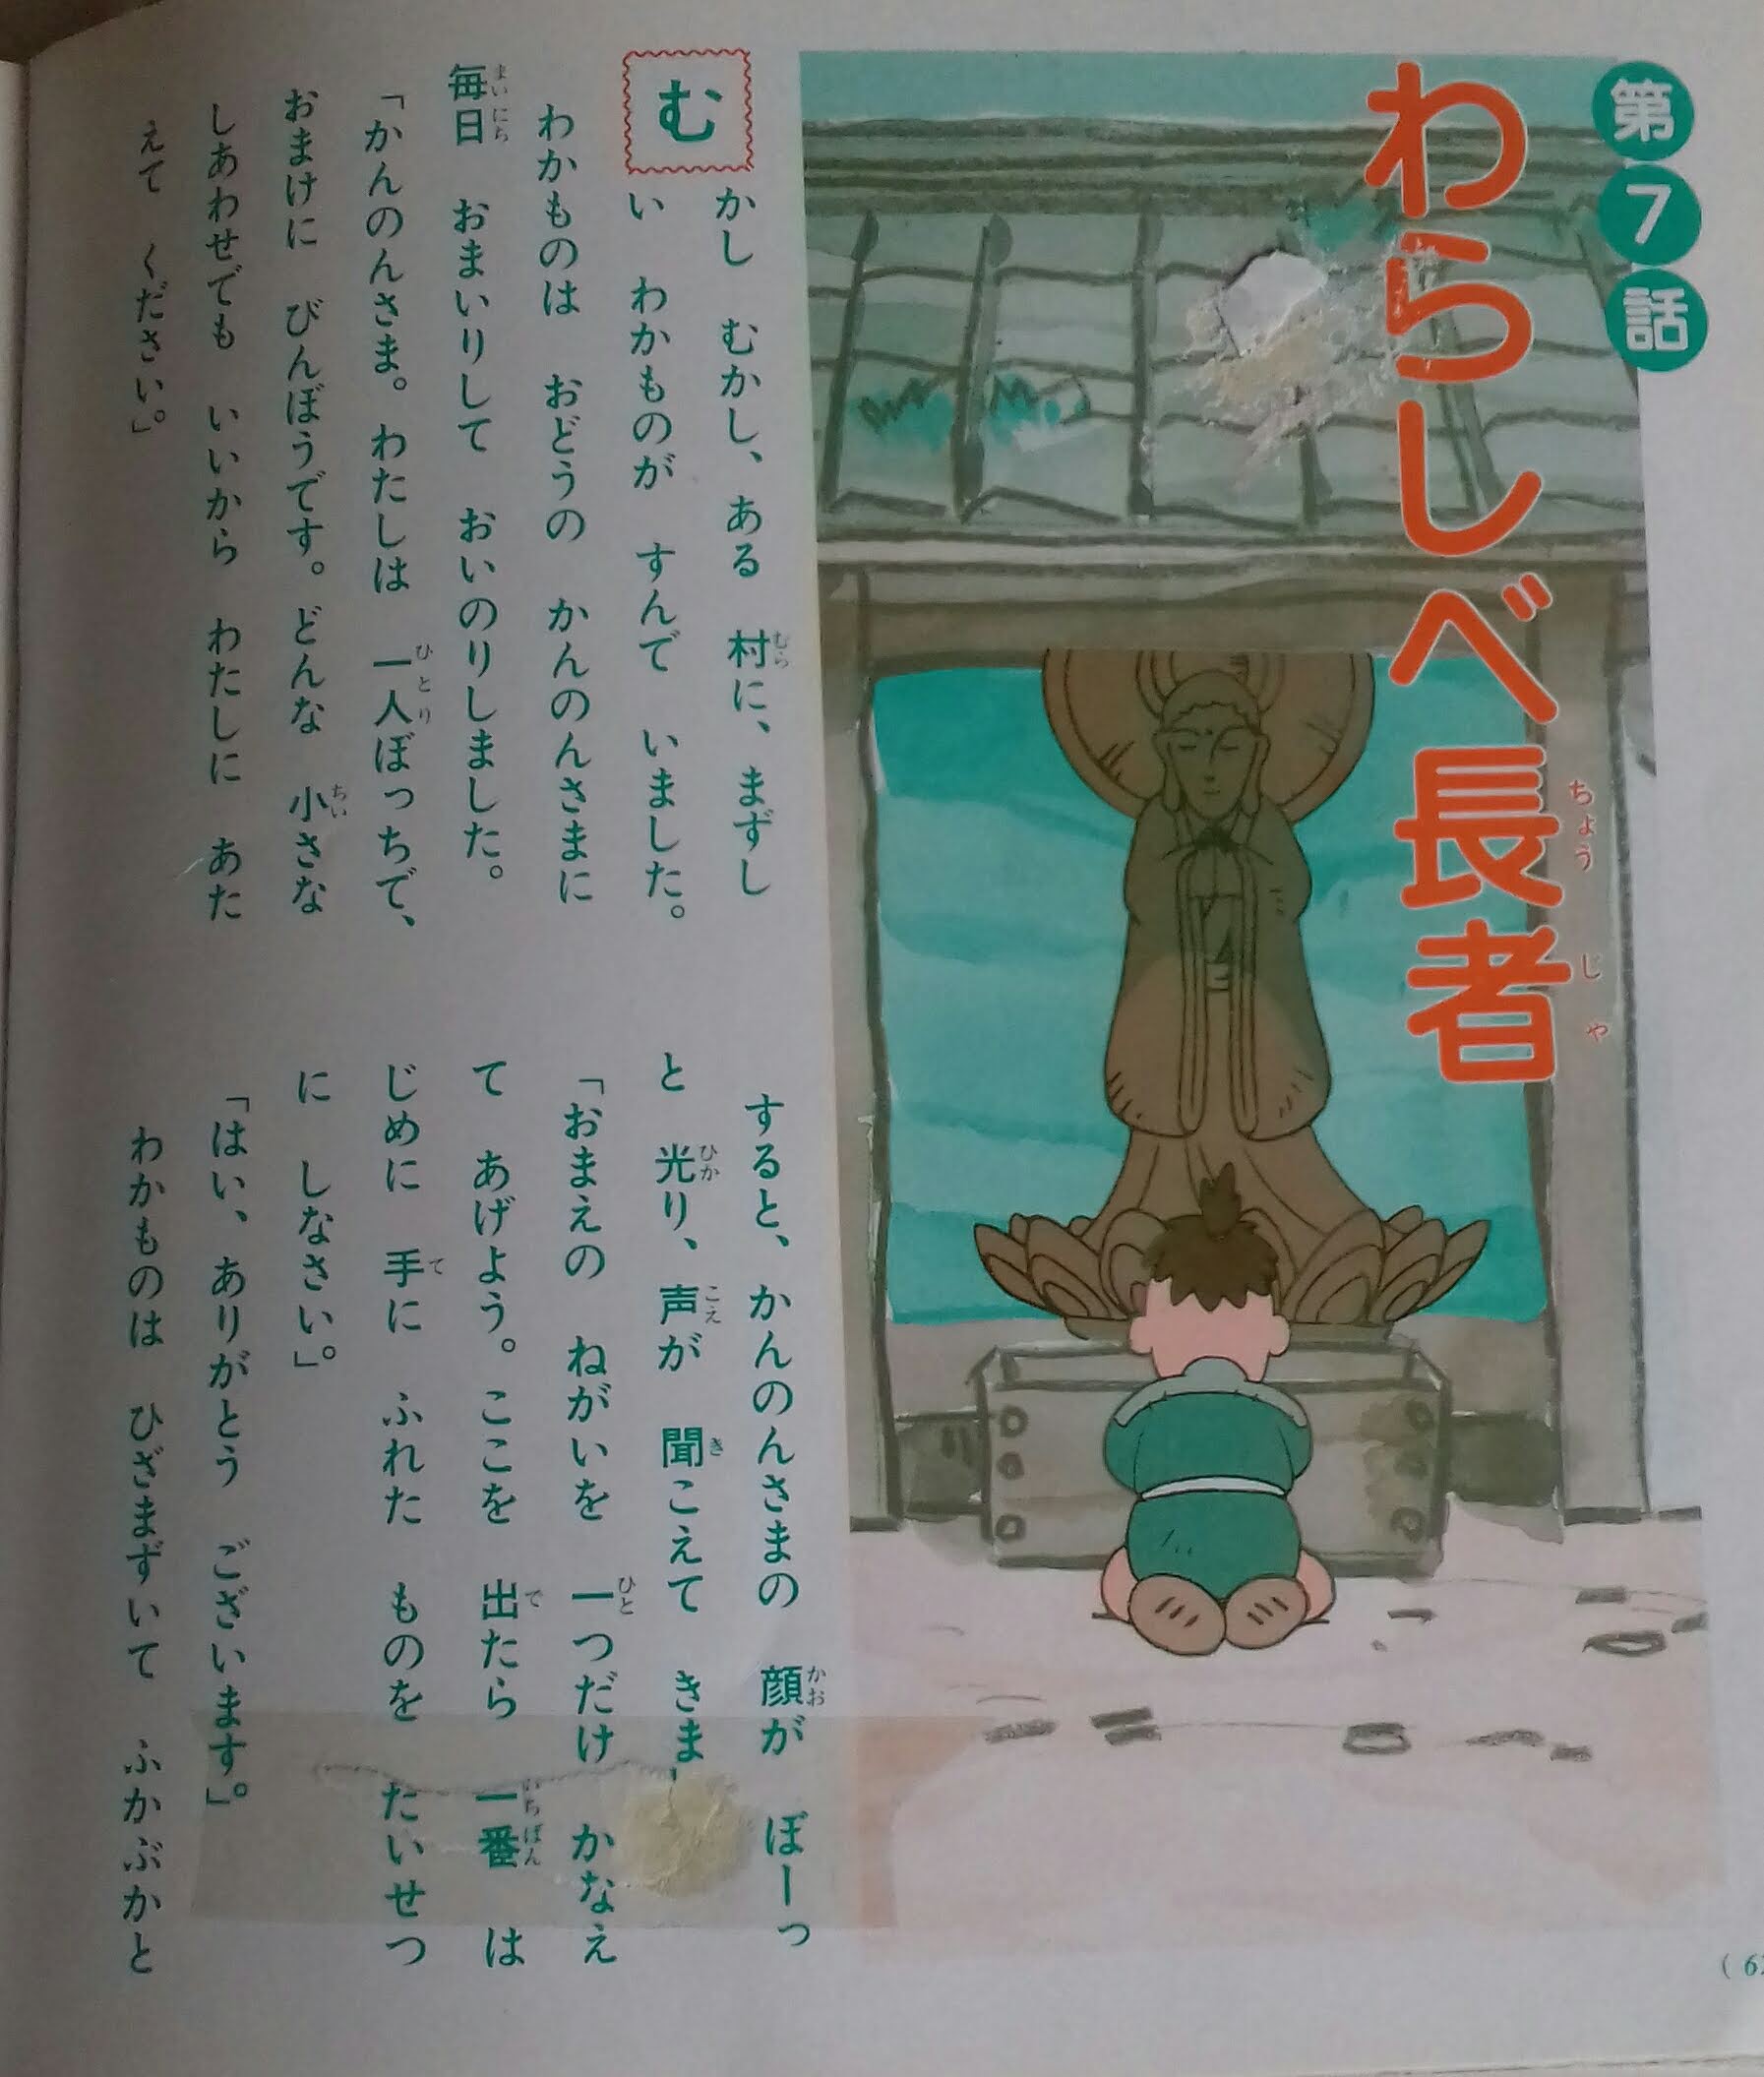 第7話
わらしべ長者
ちょうじゃ
むかし むかし、ある 村に、まずし
い わかものが すんで いました。
わかものは おどうの かんのんさまに
毎日 おまいりして おいのりしました。
「かんのんさま。わたしは 一人ぼっちで、
おまけに びんぼうです。どんな 小さな
しあわせでも いいから わたしに あた
えて ください。」
すると、かんのんさまの 顔が ぼーっ
と 光り、声が 聞こえて きま
「おまえの ねがいを 一つだけ かなえ
て あげよう。ここを 出たら 一番 は
じめに 手に ふれた ものを たいせつ
に しなさい。」
「はい、ありがとう ございます。」
わかものは ひざまずいて ふかぶかと